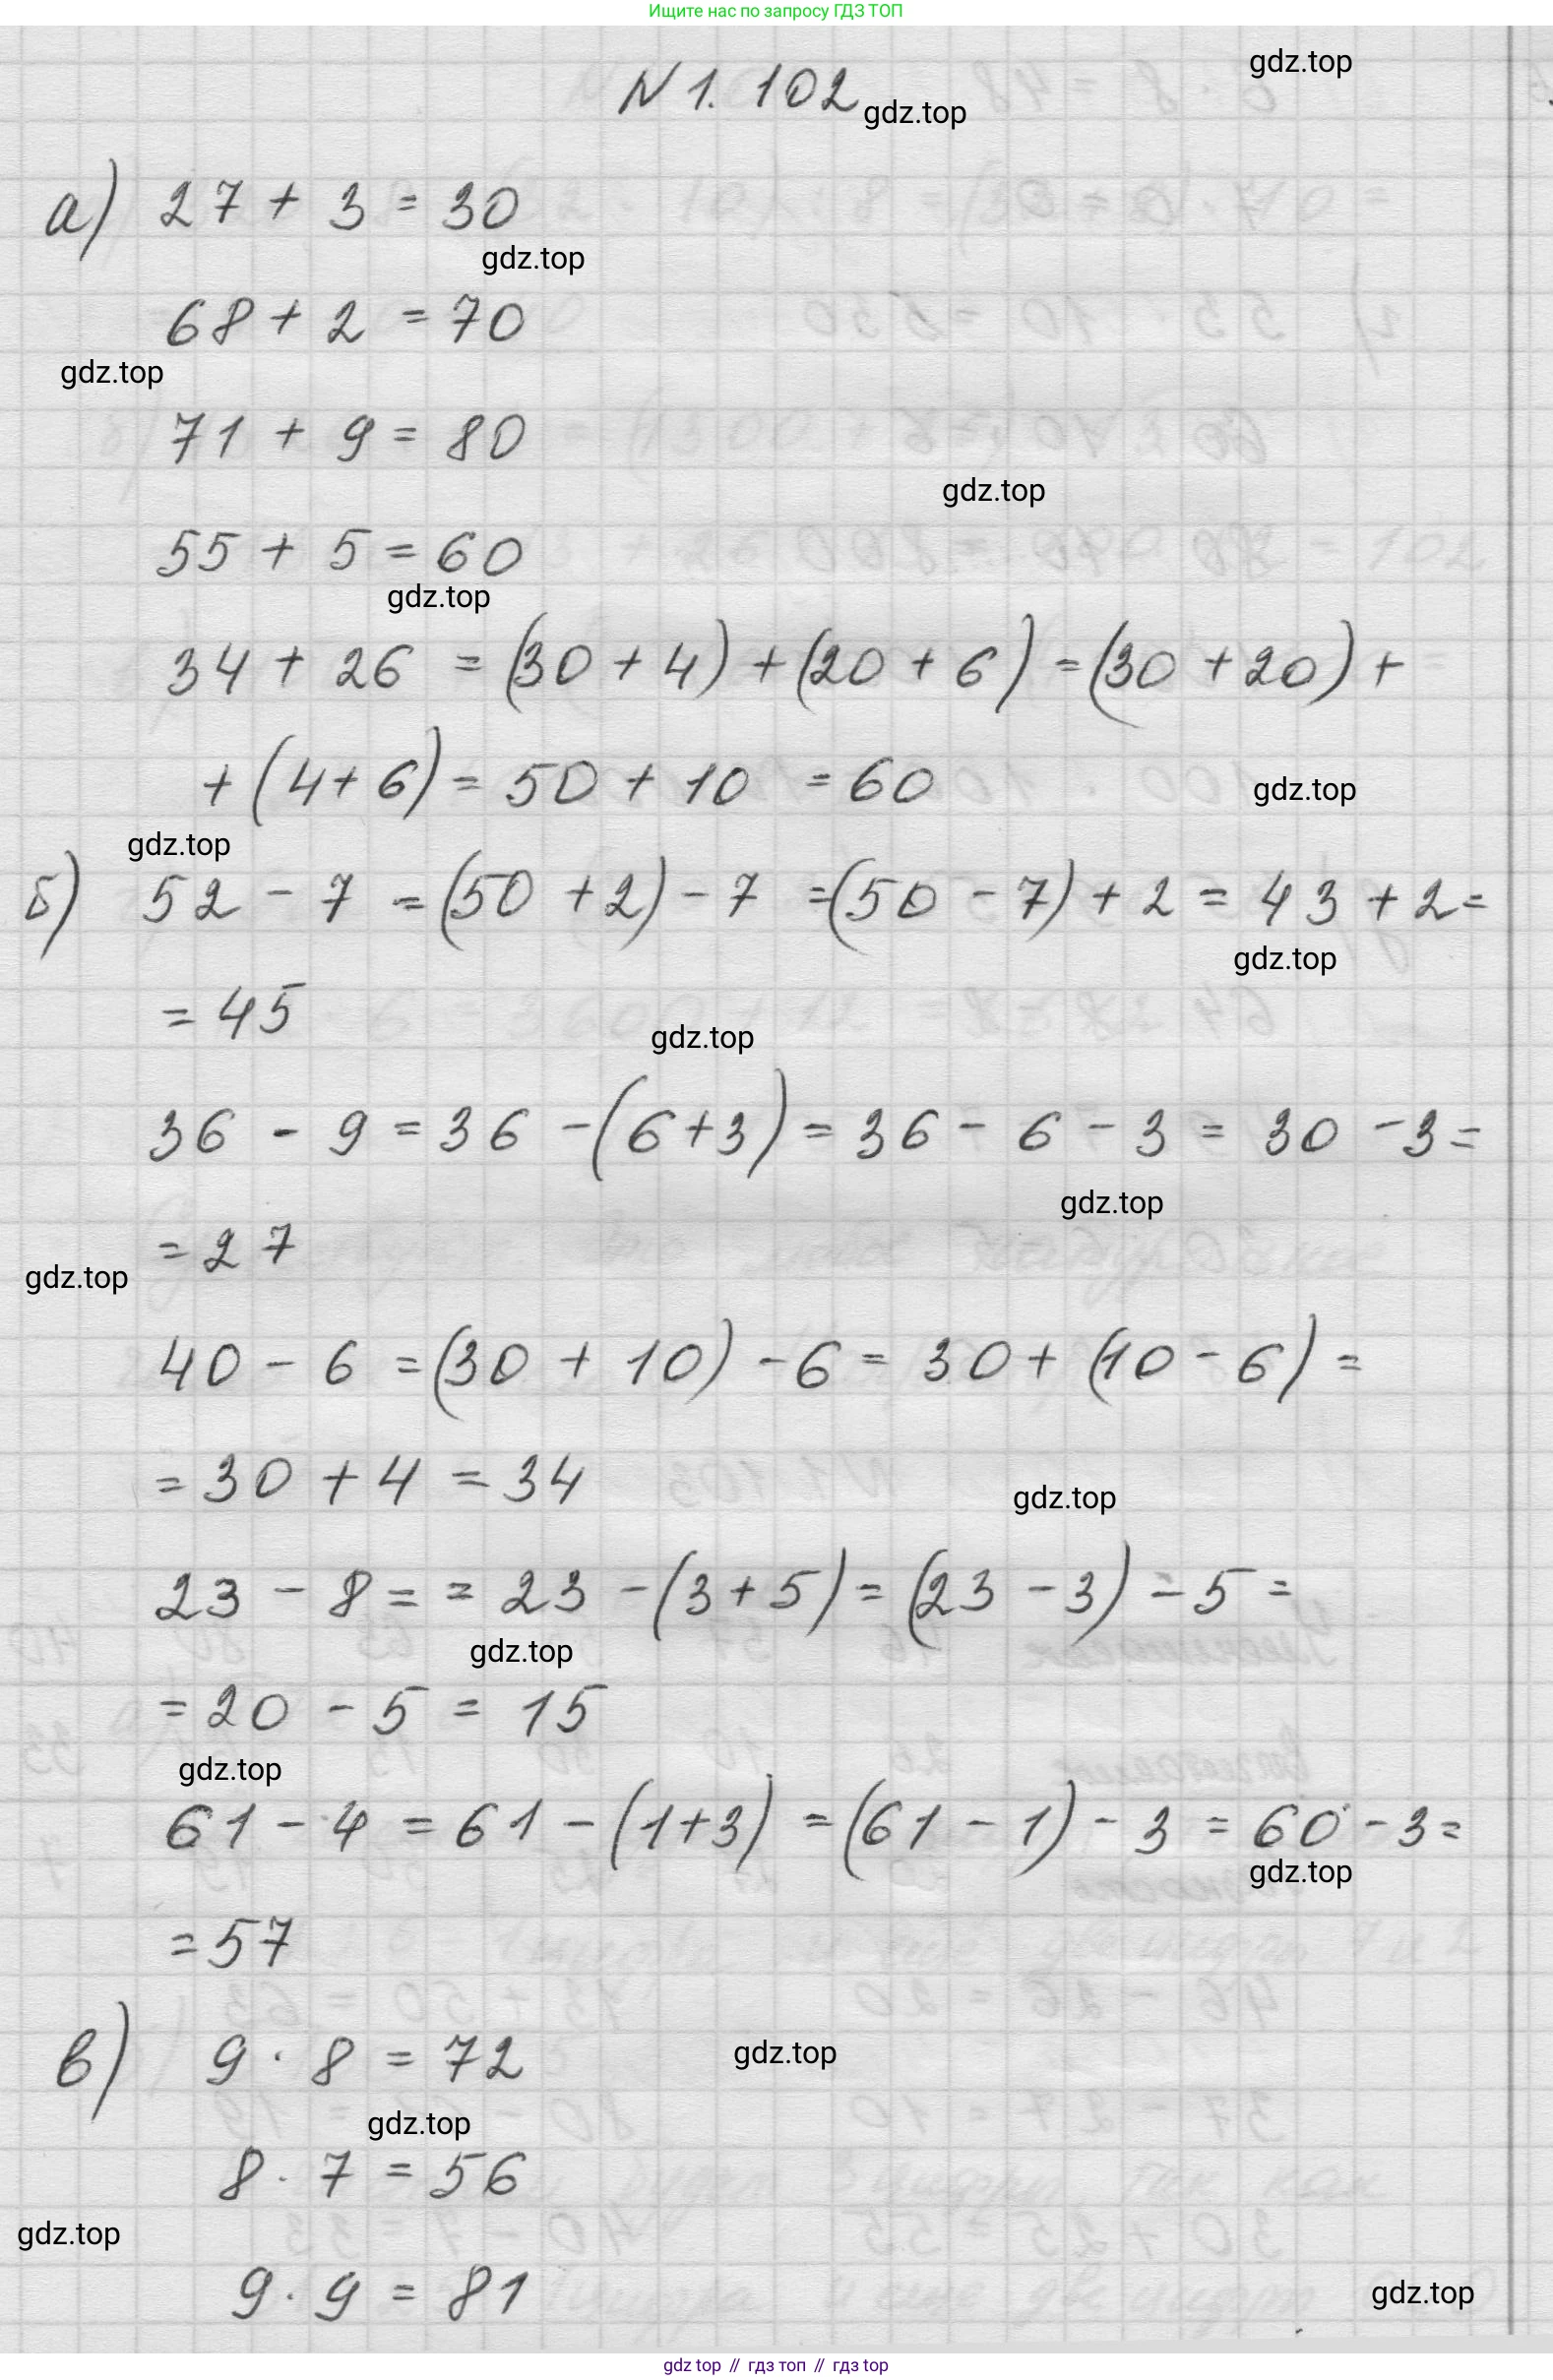 Ищите нас по запросу ГДЗ ТОП
gdz.top
N 1. 102
gdz.top
а) 27 + 3 = 30
gdz.top
68 + 2 = 70
gdz.top
71 + 9 = 80
gdz.top
55 + 5 = 60
gdz.top
34 + 26 = (30 + 4) + (20 + 6) = (30 + 20) +
+ (4 + 6) = 50 + 10 = 60
gdz.top
gdz.top
б) 52 - 7 = (50 + 2) - 7 = (50 - 7) + 2 = 43 + 2 =
gdz.top
= 45
gdz.top
36 - 9 = 36 - (6 + 3) = 36 - 6 - 3 = 30 - 3 =
gdz.top
= 27
gdz.top
40 - 6 = (30 + 10) - 6 = 30 + (10 - 6) =
= 30 + 4 = 34
gdz.top
23 - 8 = = 23 - (3 + 5) = (23 - 3) - 5 =
gdz.top
= 20 - 5 = 15
gdz.top
61 - 4 = 61 - (1 + 3) = (61 - 1) - 3 = 60 - 3 =
gdz.top
= 57
в) 9 · 8 = 72
gdz.top
gdz.top
8 · 7 = 56
gdz.top
9 · 9 = 81
gdz.top
gdz top // гдз топ // гдз top